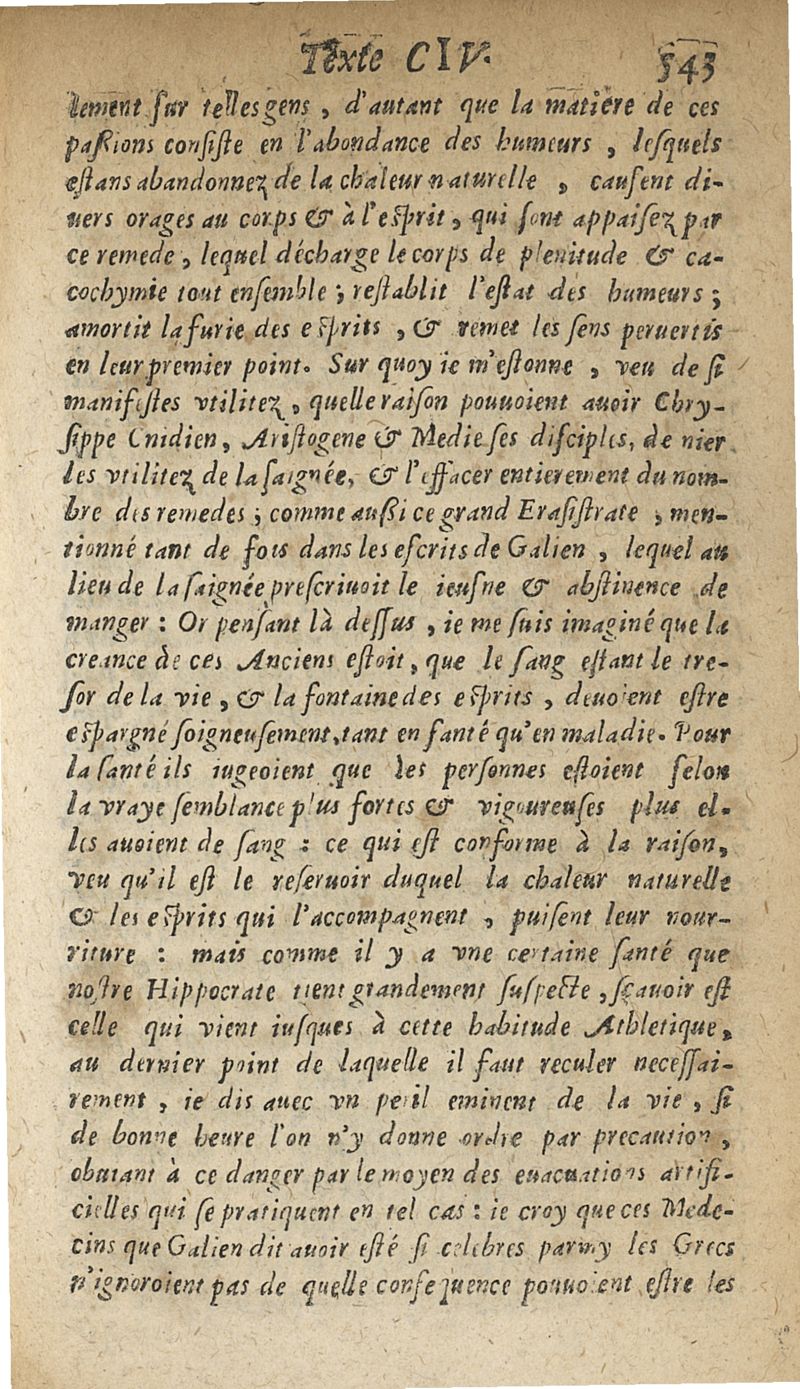 Texte CIV. 543
lement ſur telles gens, d'autant que la matiere de ces
paſſions conſiſte en l'abondance des humeurs, leſquels
eſtans abandonnez de la chaleur naturelle, cauſent di-
uers orages au corps & à l'eſprit, qui ſont appaiſez par
ce remede, lequel décharge le corps de plenitude & ca-
cochymie tout enſemble; reſtablit l'eſtat des humeurs;
amortit la furie des eſprits, & remet les ſens peruertis
en leur premier point. Sur quoy ie m'eſtonne, veu de ſi
manifeſtes vtilitez, quelle raiſon pouuoient auoir Chry-
ſippe Cnidien, Ariſtogene & Medie ſes diſciples, de nier
les vtilitez de la ſaignée, & l'effacer entierement du nom-
bre des remedes; comme auſſi ce grand Eraſiſtrate, men-
tionné tant de fois dans les eſcrits de Galien, lequel au
lieu de la ſaignée preſcriuoit le ieuſne & abſtinence de
manger: Or penſant là deſſus, ie me ſuis imaginé que la
creance de ces Anciens eſtoit, que le ſang eſtant le tre-
ſor de la vie, & la fontaine des eſprits, deuoient eſtre
eſpargné ſoigneuſement, tant en ſanté qu'en maladie. Pour
la ſanté ils iugeoient que les perſonnes eſtoient ſelon
la vraye ſemblance plus fortes & vigoureuſes plus el-
les auoient de ſang: ce qui eſt conforme à la raiſon,
veu qu'il eſt le reſeruoir duquel la chaleur naturelle
& les eſprits qui l'accompagnent, puiſent leur nour-
riture: mais comme il y a vne certaine ſanté que
noſtre Hippocrate tient grandement ſuſpecte, ſçauoir eſt
celle qui vient iuſques à cette habitude Athletique,
au dernier point de laquelle il faut reculer neceſſai-
rement, ie dis auec vn peril eminent de la vie, ſi
de bonne heure l'on n'y donne ordre par precaution,
obuiant à ce danger par le moyen des euacuations artifi-
cielles qui ſe pratiquent en tel cas: ie croy que ces Mede-
cins que Galien dit auoir eſté ſi celebres parmy les Grecs
n'ignoroient pas de quelle conſequence pouuoient eſtre les